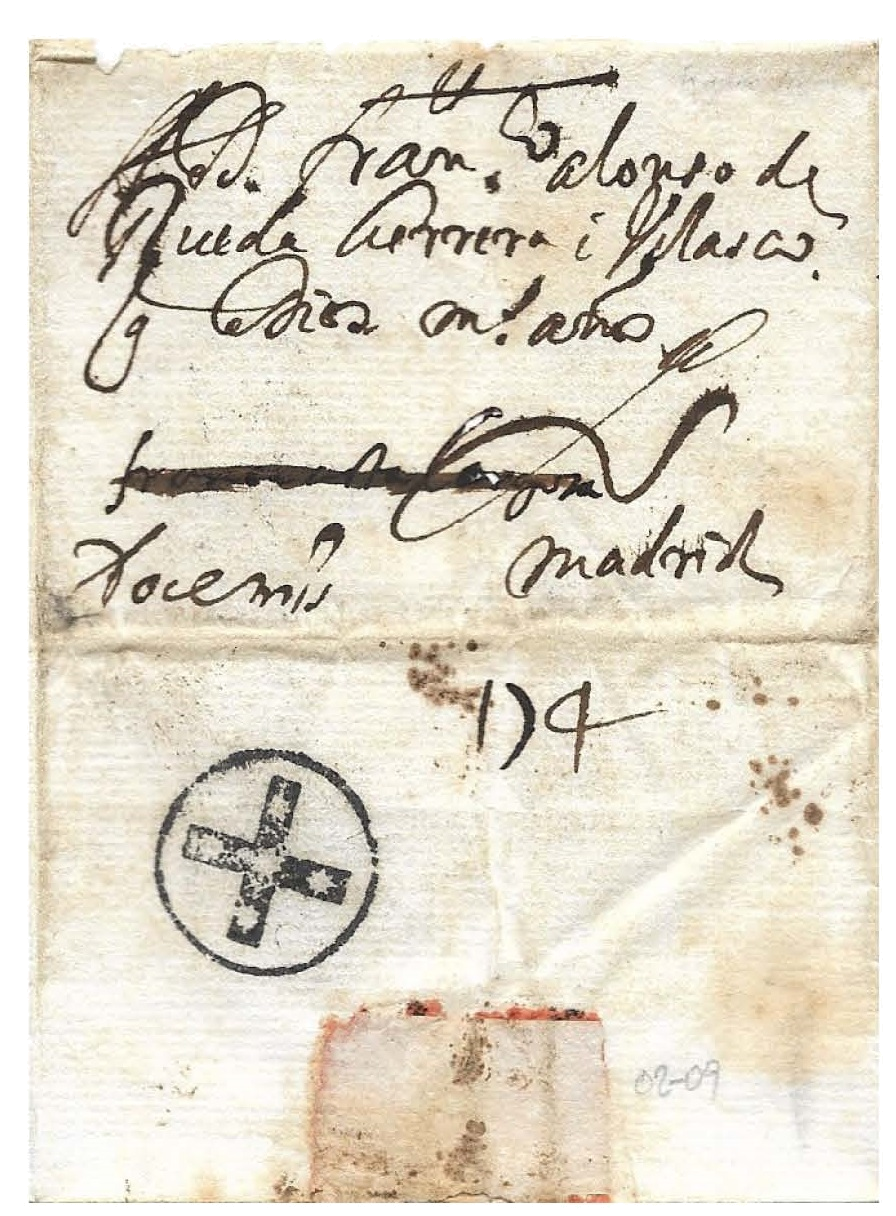 A D. fran.co alonso de
Rueda herrera i Velasco.
g e Dios m.s años
Doce mrs madrid
02-09